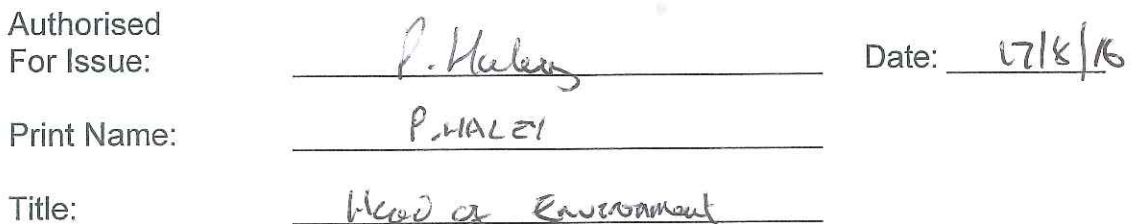 Authorised
For Issue: P. Haley Date: 17/8/16
Print Name: P. HALEY
Title: Head of Environment